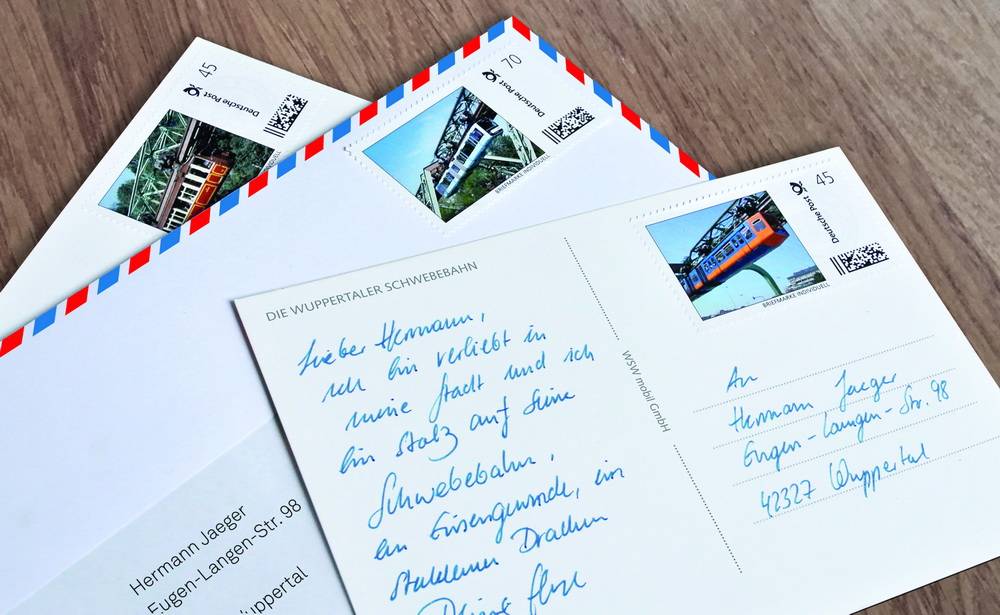 45
Deutsche Post
70
Deutsche Post
BRIEFMARKE INDIVIDUELL
45
Deutsche Post
BRIEFMARKE INDIVIDUELL
DIE WUPPERTALER SCHWEBEBAHN
Lieber Hermann,
ich bin verliebt in
meine Stadt und ich
bin stolz auf seine
Schwebebahn,
ein Eisengewinde, ein
stählerner Drachen
Deine
WSW mobil GmbH
An
Hermann Jaeger
Eugen-Langen-Str. 98
42327 Wuppertal
Hermann Jaeger
Eugen-Langen-Str. 98
Wuppertal